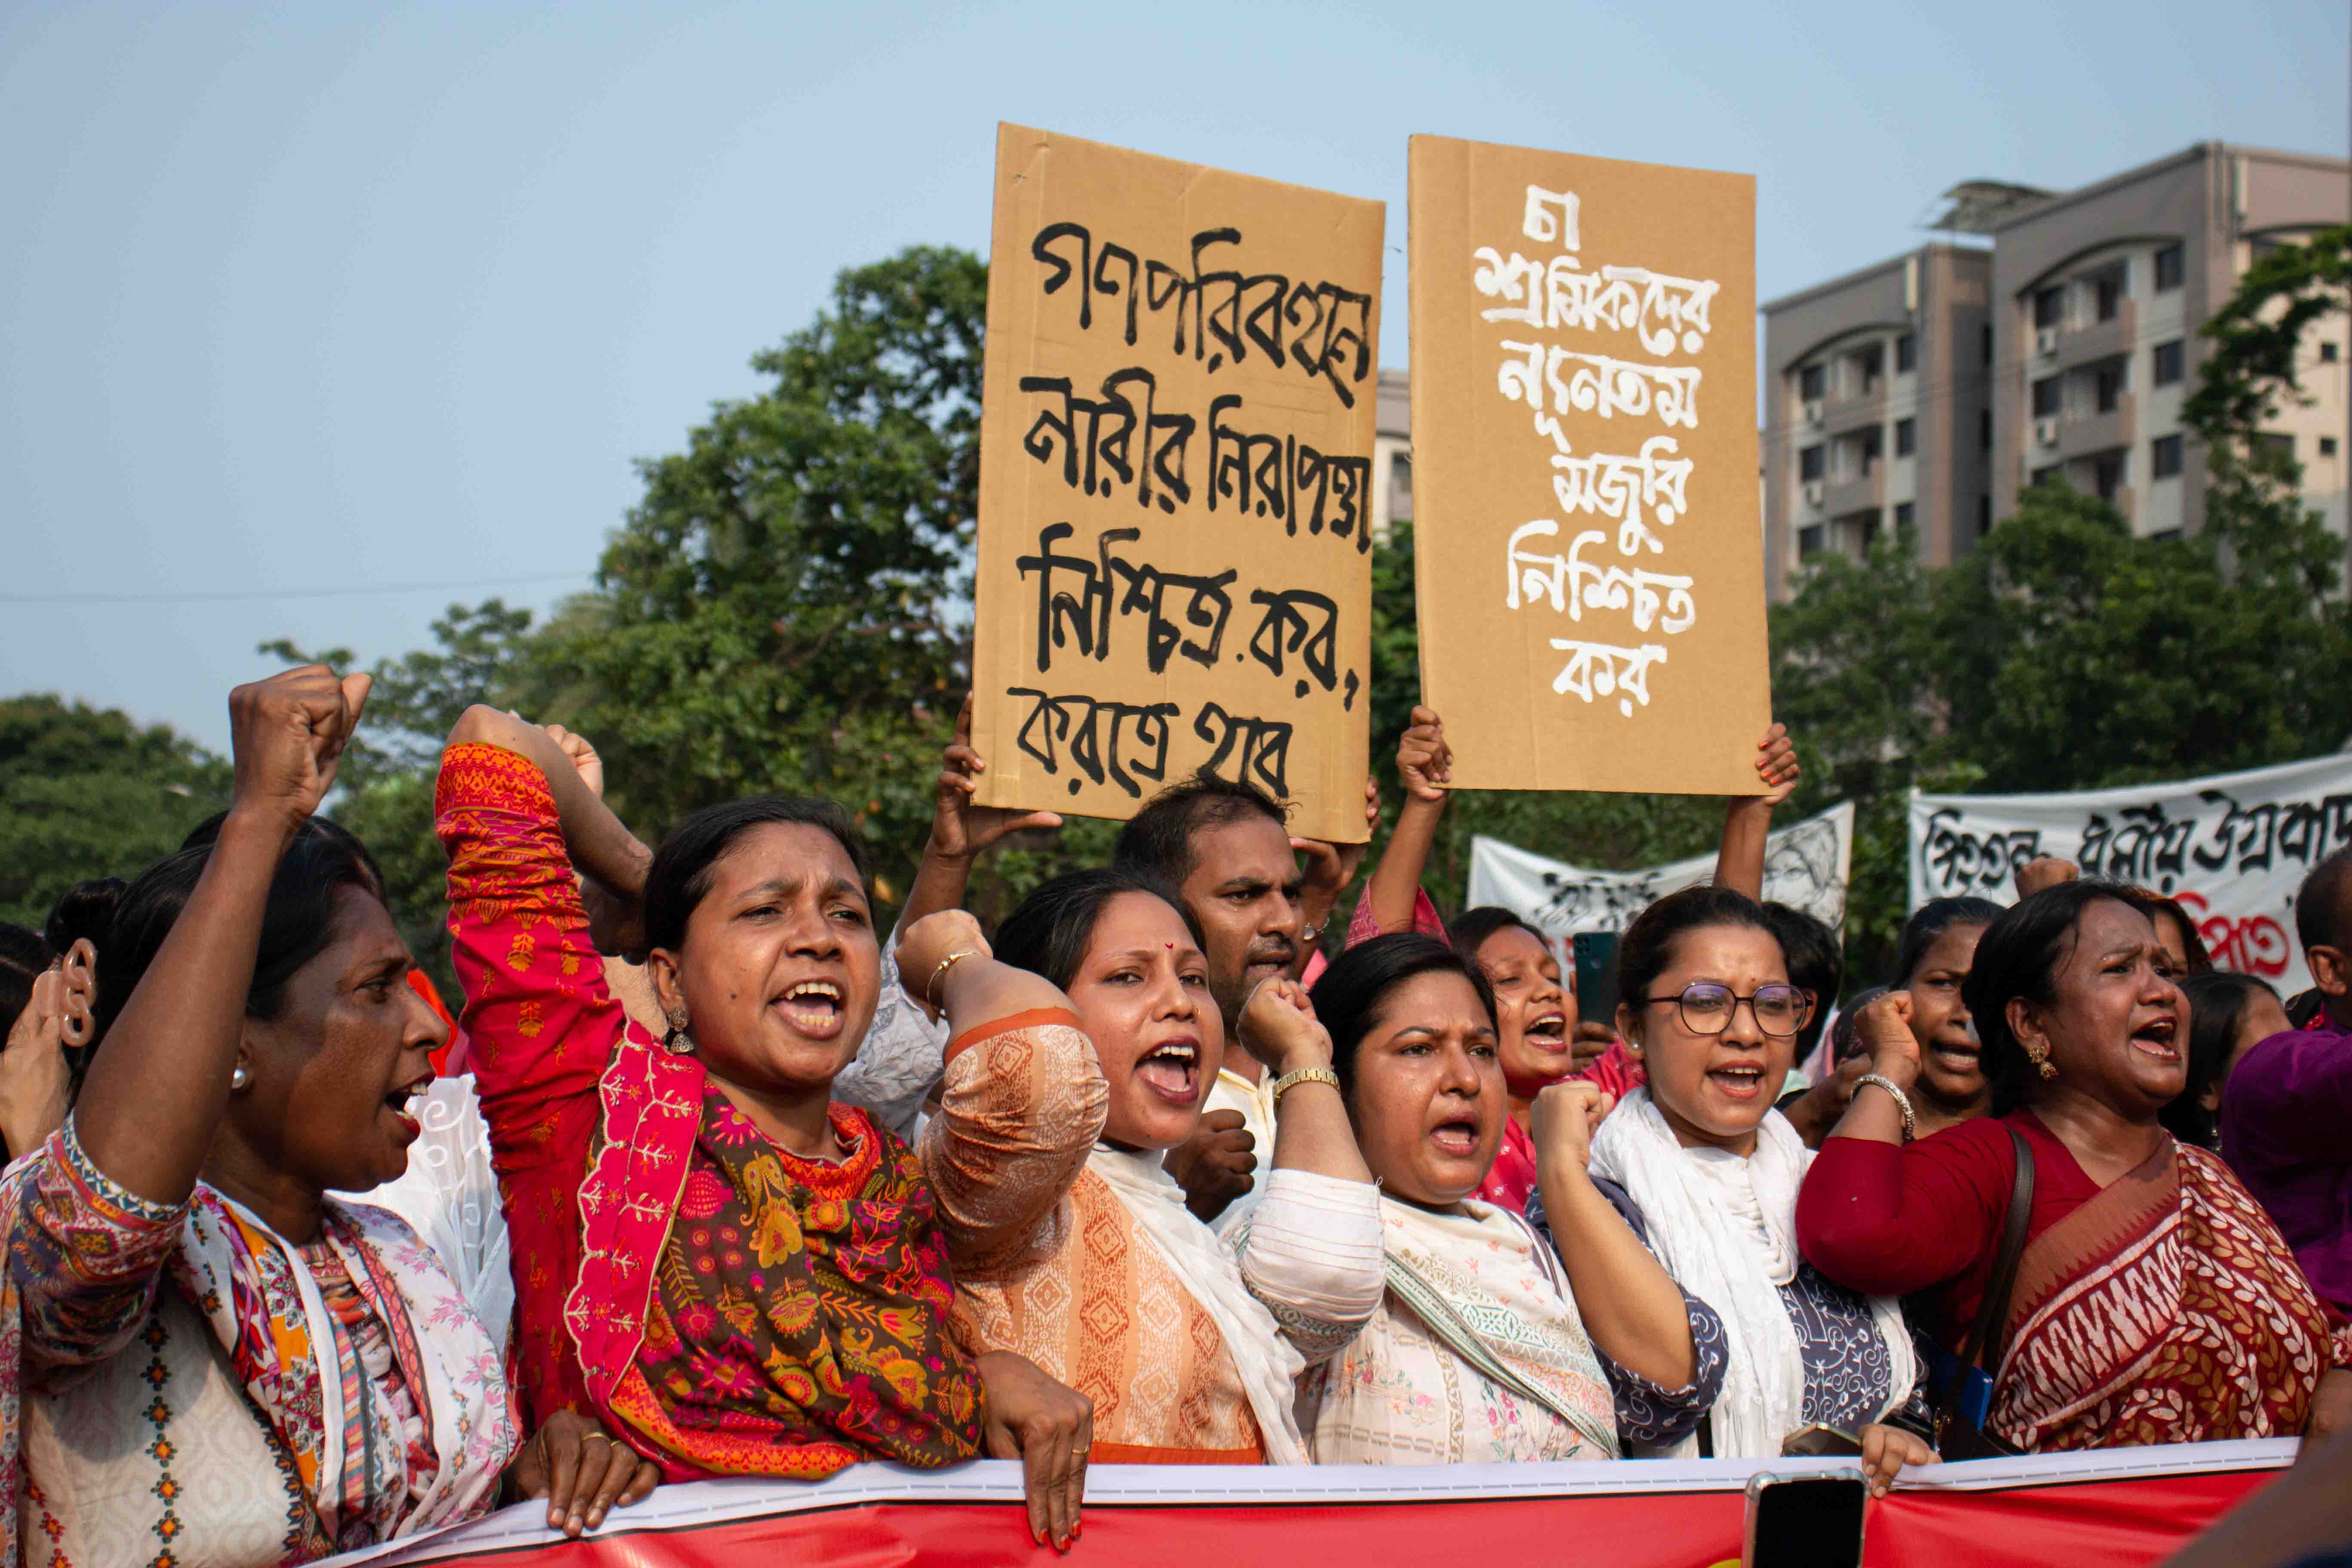 গণপরিবহনে
নারীর নিরাপত্তা
নিশ্চিত কর,
করতে হবে
চা
শ্রমিকদের
ন্যূনতম
মজুরি
নিশ্চিত
কর
ধর্মীয় উগ্রবাদ
নিপাত